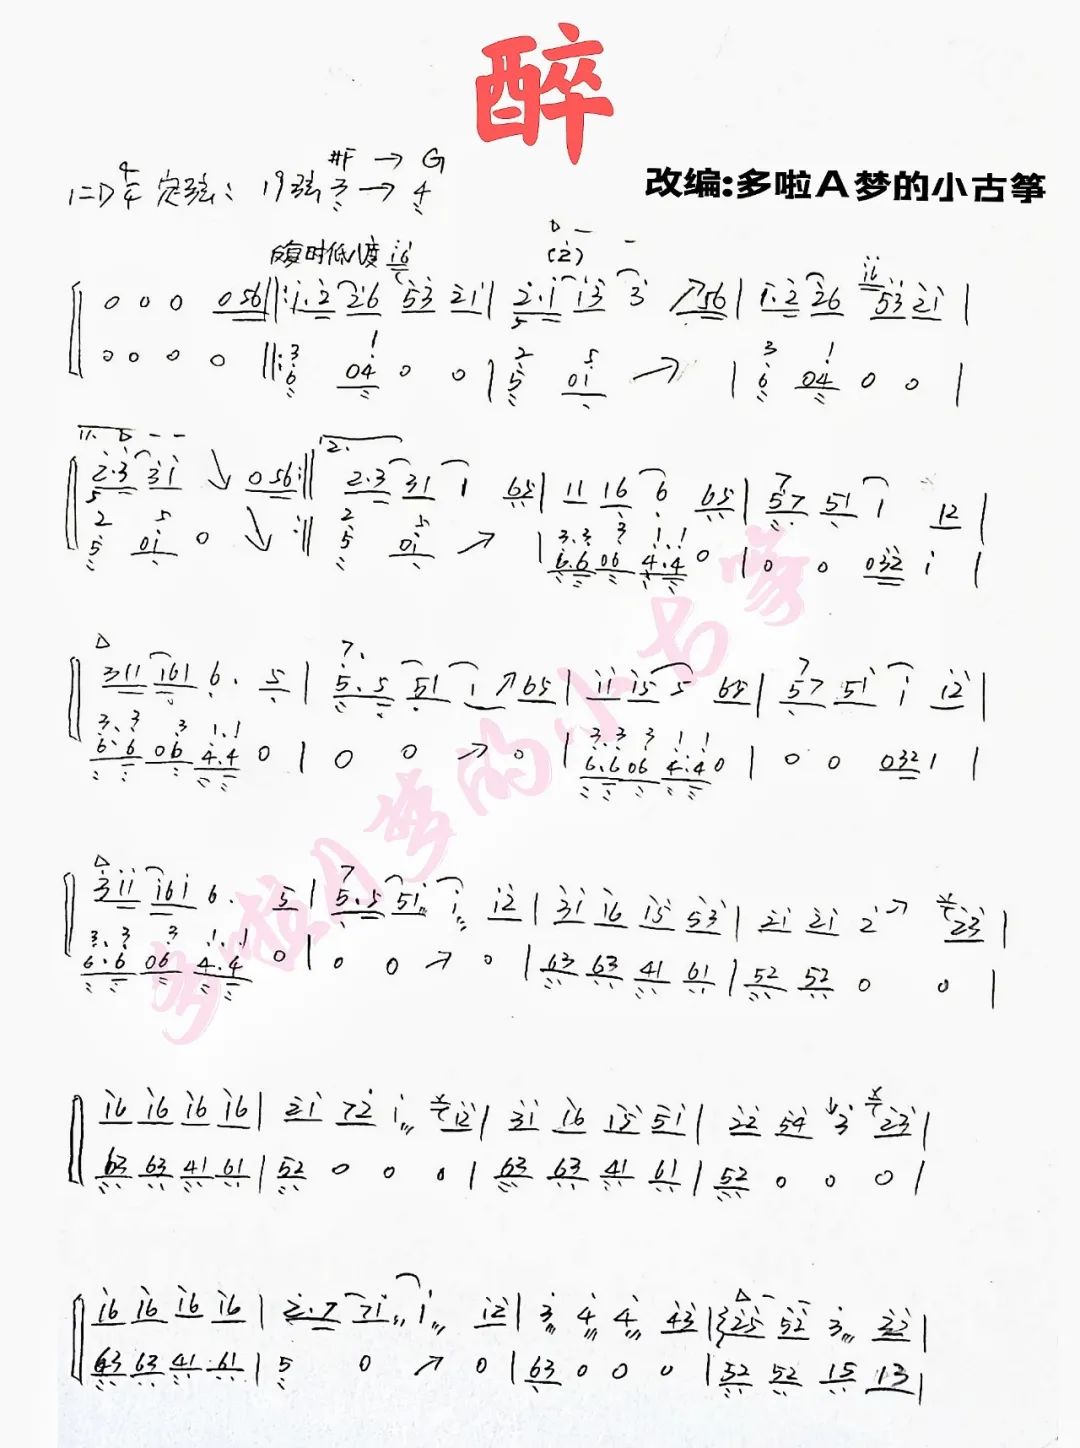 醉
#F → G
1=D 4/4 定弦: 19弦 3 → 4
改编:多啦A梦的小古筝
反复时低八度 i6
(2)
0 0 0 056 ||: 1.2 26 53 21 | 2.1 13 3 ↗ 56 | 1.2 26 53 21 |
0 0 0 0 ||: 6 04 0 0 | 5 01 → | 6 04 0 0 |
2.3 31 ↘ 056 :|| 2.3 31 1 65 | 11 16 6 65 | 57 51 1 12 |
5 01 0 ↘ :|| 5 01 ↗ | 6.6 06 4.4 0 | 0 0 032 1 |
311 161 6. 5 | 5.5 51 1 ↗ 65 | 11 15 5 65 | 57 51 1 12 |
6.6 06 4.4 0 | 0 0 → 0 | 6.6 06 4.4 0 | 0 0 032 1 |
311 161 6. 5 | 5.5 51 1 12 | 31 16 15 53 | 21 21 2 ↗ 23 |
6.6 06 4.4 0 | 0 0 → 0 | 63 63 41 61 | 52 52 0 0 |
16 16 16 16 | 21 72 1 12 | 31 16 15 51 | 22 54 3 23 |
63 63 41 61 | 52 0 0 0 | 63 63 41 61 | 52 0 0 0 |
16 16 16 16 | 2.7 71 1 12 | 3 4 4 43 | 25 52 3 22 |
63 63 41 61 | 5 0 → 0 | 63 0 0 0 | 52 52 15 13 |
多啦A梦的小古筝